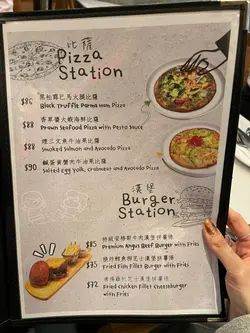 比薩
Pizza
Station
$86 黑松露巴馬火腿比薩
Black Truffle Parma Ham Pizza
$88 香草醬大蝦海鮮比薩
Prawn Seafood Pizza with Pesto Sauce
$88 煙三文魚牛油果比薩
Smoked Salmon and Avocado Pizza
$90 鹹蛋黃蟹肉牛油果比薩
Salted Egg Yolk, Crabmeat and Avocado Pizza
漢堡
Burger
Station
$85 特級安格斯牛肉漢堡拼薯條
Premium Angus Beef Burger with Fries
$75 漢堡拼薯條
Fried Fish Fillet Burger with Fries
$72 芝士漢堡拼薯條
Fried Chicken Fillet Cheeseburger
with Fries